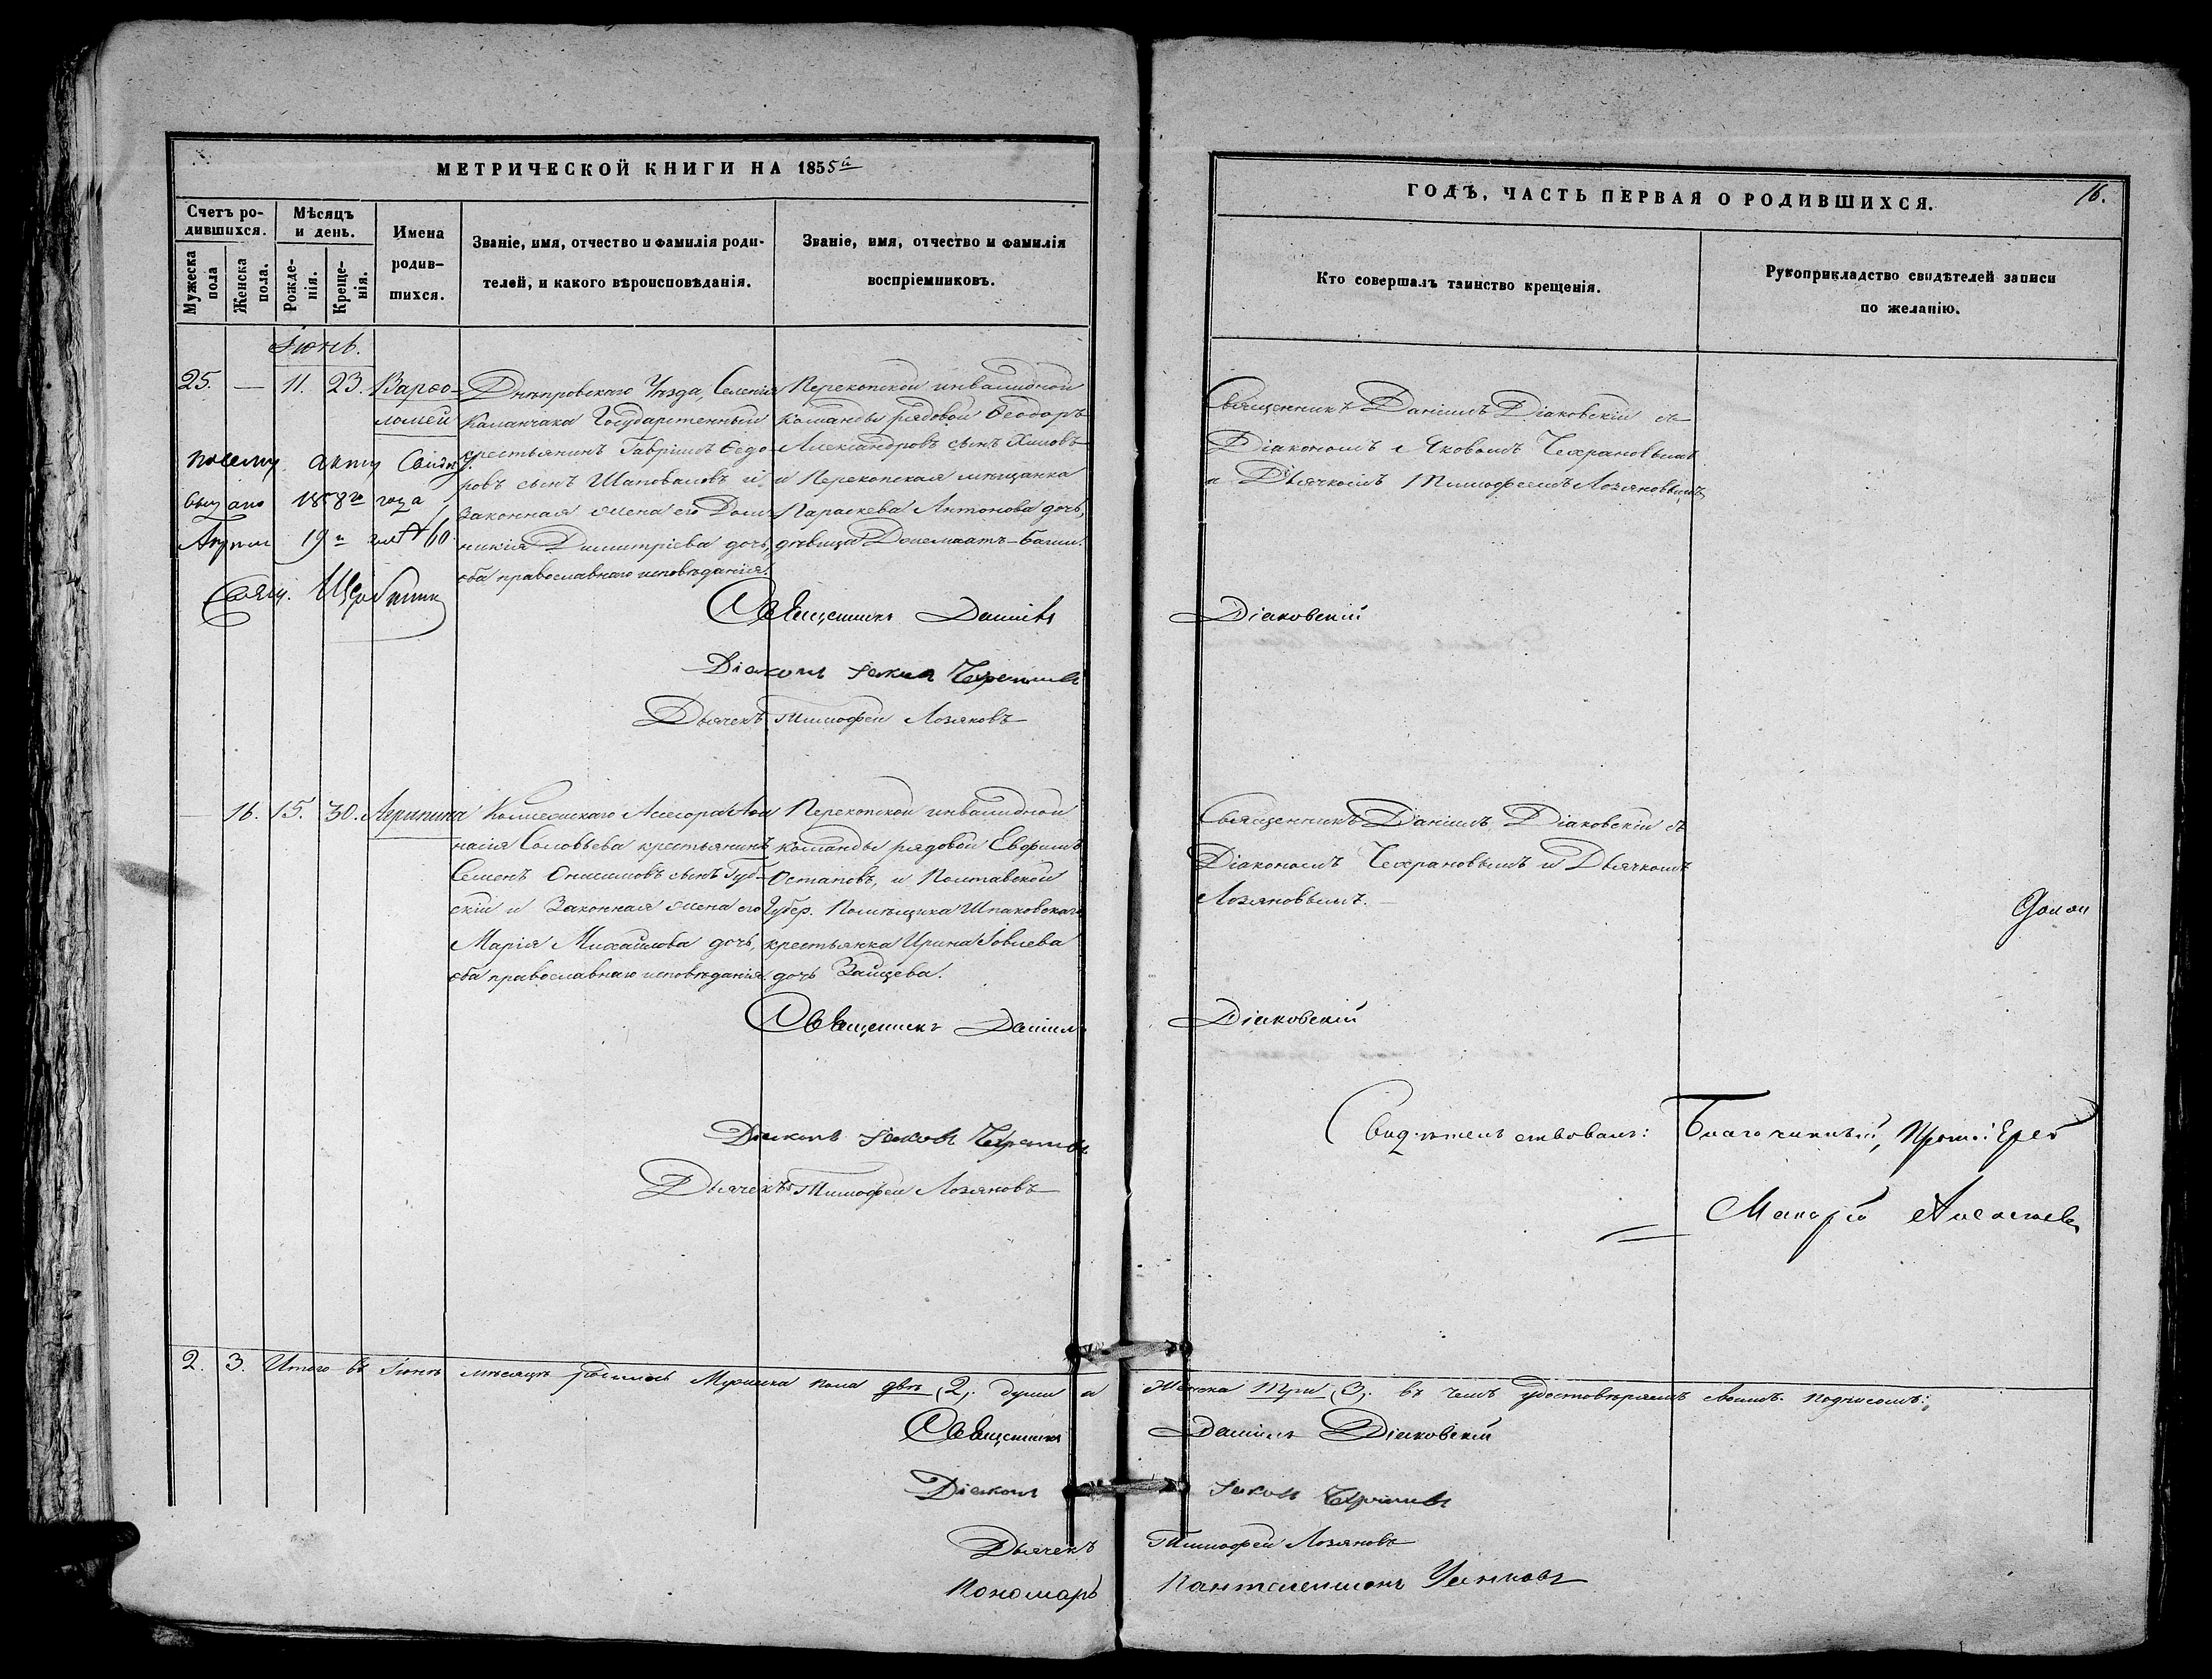 МЕТРИЧЕСКОЙ КНИГИ НА 1855й
Счетъ ро-
дившихся.
Мужеска
пола
Женска
пола.
Мѣсяцъ
и день.
Рожде-
нія.
Креще-
нія.
Имена
родив-
шихся.
Званіе, имя, отчество и фамилія роди-
телей, и какого вѣроисповѣданія.
Званіе, имя, отчество и фамилія
воспріемниковъ.
Іюнь.
25. — 11. 23. Варѳо-
ломей
Днѣпровскаго Уѣзда, Селенія
Каланчака Государственный
крестьянинъ Гавріилъ Ѳедо-
ровъ сынъ Шаповаловъ и
Законная жена его Дом-
никія Димитріева дочь,
оба православнаго исповѣданія.
Перекопской инвалидной
команды рядовой Ѳеодоръ
Александровъ сынъ
и Перекопская мѣщанка
Параскева Антонова дочь,
дѣвица
По сему акту Свидѣт.
выдано 1858го года
Апрѣля 19го за № 60
Свящ.
Священникъ Даніилъ
Діаконъ Іаковъ
Дьячекъ Тимофей Лозяновъ
— 16. 15. 30. Агрипина
Коллежскаго Асесора Афа-
насія Соловьева крестьянинъ
Семенъ Онисимовъ сынъ Губ-
скій и Законная жена его
Марія Михайлова дочь,
оба православнаго исповѣданія.
Перекопской инвалидной
команды рядовой Евфимъ
Остаповъ, и Полтавской
Губер. Помѣщика Шпаковскаго
крестьянка Ирина Іовлева
дочь Зайцева.
Священникъ Даніилъ
Діаконъ Іаковъ
Дьячекъ Тимофей Лозяновъ
2. 3. Итого въ Іюнѣ мѣсяцѣ родилось Мужеска пола двѣ (2). души а
Священникъ
Діаконъ
Дьячекъ
Пономарь
ГОДЪ, ЧАСТЬ ПЕРВАЯ О РОДИВШИХСЯ.
16.
Кто совершалъ таинство крещенія.
Рукоприкладство свидѣтелей записи
по желанію.
Священникъ Даніилъ Діаковскій съ
Діакономъ Яковомъ
и Дьячкомъ Тимофеемъ Лозяновымъ
Діаковскій
Священникъ Даніилъ Діаковскій съ
Діакономъ и Дьячкомъ
Лозяновымъ.
Діаковскій
Свидѣтельствовалъ: Благочинный, Протоіерей
Макарій
Женска Три (3). въ чемъ удостовѣряемъ своимъ подписомъ:
Даніилъ Діаковскій
Іаковъ
Тимофей Лозяновъ
Пантелеимонъ